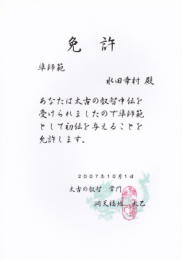 免許
準師範
永田幸村 殿
あなたは太古の叡智中伝を
受けられましたので準師範
として初伝を与えることを
免許します。
2007年10月1日
太古の叡智 掌門
洞天福地